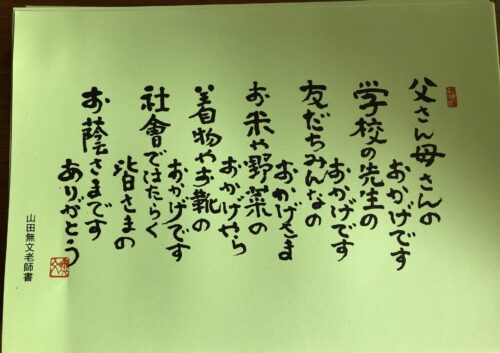 父さん母さんの
おかげです
学校の先生の
おかげです
友だちみんなの
おかげさま
お米や野菜の
おかげやら
着物やお靴の
おかげです
社會ではたらく
皆さまの
お蔭さまです
ありがとう
山田無文老師書